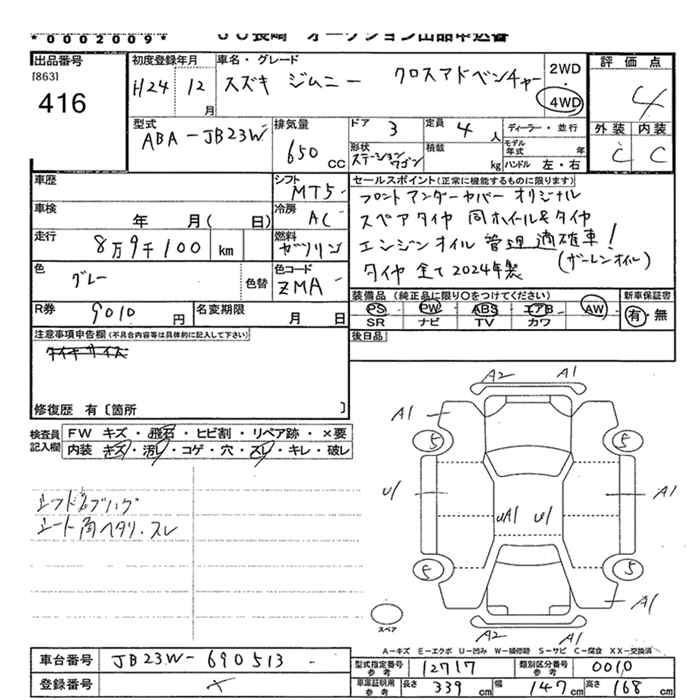 *0002009* JU長崎 オークション出品申込書
出品番号
[863]
416
初度登録年月
H24 12月
車名・グレード
スズキ ジムニー クロスアドベンチャー
2WD
4WD
評価点
4
型式
ABA-JB23W
排気量
650 CC
ドア 3
定員 4 人
ディーラー・並行
モデル年式 年
形状 ステーションワゴン
積載 kg
ハンドル 左・右
外装 内装
C C
車歴
シフト MT5
車検 年 月( 日)
冷房 AC
走行 8万9千100 km
燃料 ガソリン
色 グレー 色替
色コード ZMA
R券 9010 円
名変期限 月 日
セールスポイント(正常に機能するものに限ります)
フロントアンダーカバー オリジナル
スペアタイヤ 同ホイール&タイヤ
エンジンオイル 管理 適確車!
(ガーレンオイル)
タイヤ 全て2024年製
装備品(純正品に限り○をつけてください)
PS PW ABS エアB AW
SR ナビ TV カワ
新車保証書
有・無
後日品
注意事項申告欄(不具合内容等は具体的に記入して下さい)
タイヤサイズ
修復歴 有〔箇所 〕
検査員記入欄
FW キズ・飛石・ヒビ割・リペア跡・×要
内装 キズ・汚レ・コゲ・穴・スレ・キレ・破レ
シート角ヘタリ・スレ
A2 A1
A1
5 5
U1 UA1 U1 A1
5 5
A1
スペア
A2 A1
A-キズ E-エクボ U-凹み W-補修跡 S-サビ C-腐食 XX-交換済
車台番号 JB23W-690513
登録番号
型式指定番号 参考 12717
類別区分番号 参考 0010
車庫証明用 参考 長さ 339 cm 幅 147 cm 高さ 168 cm